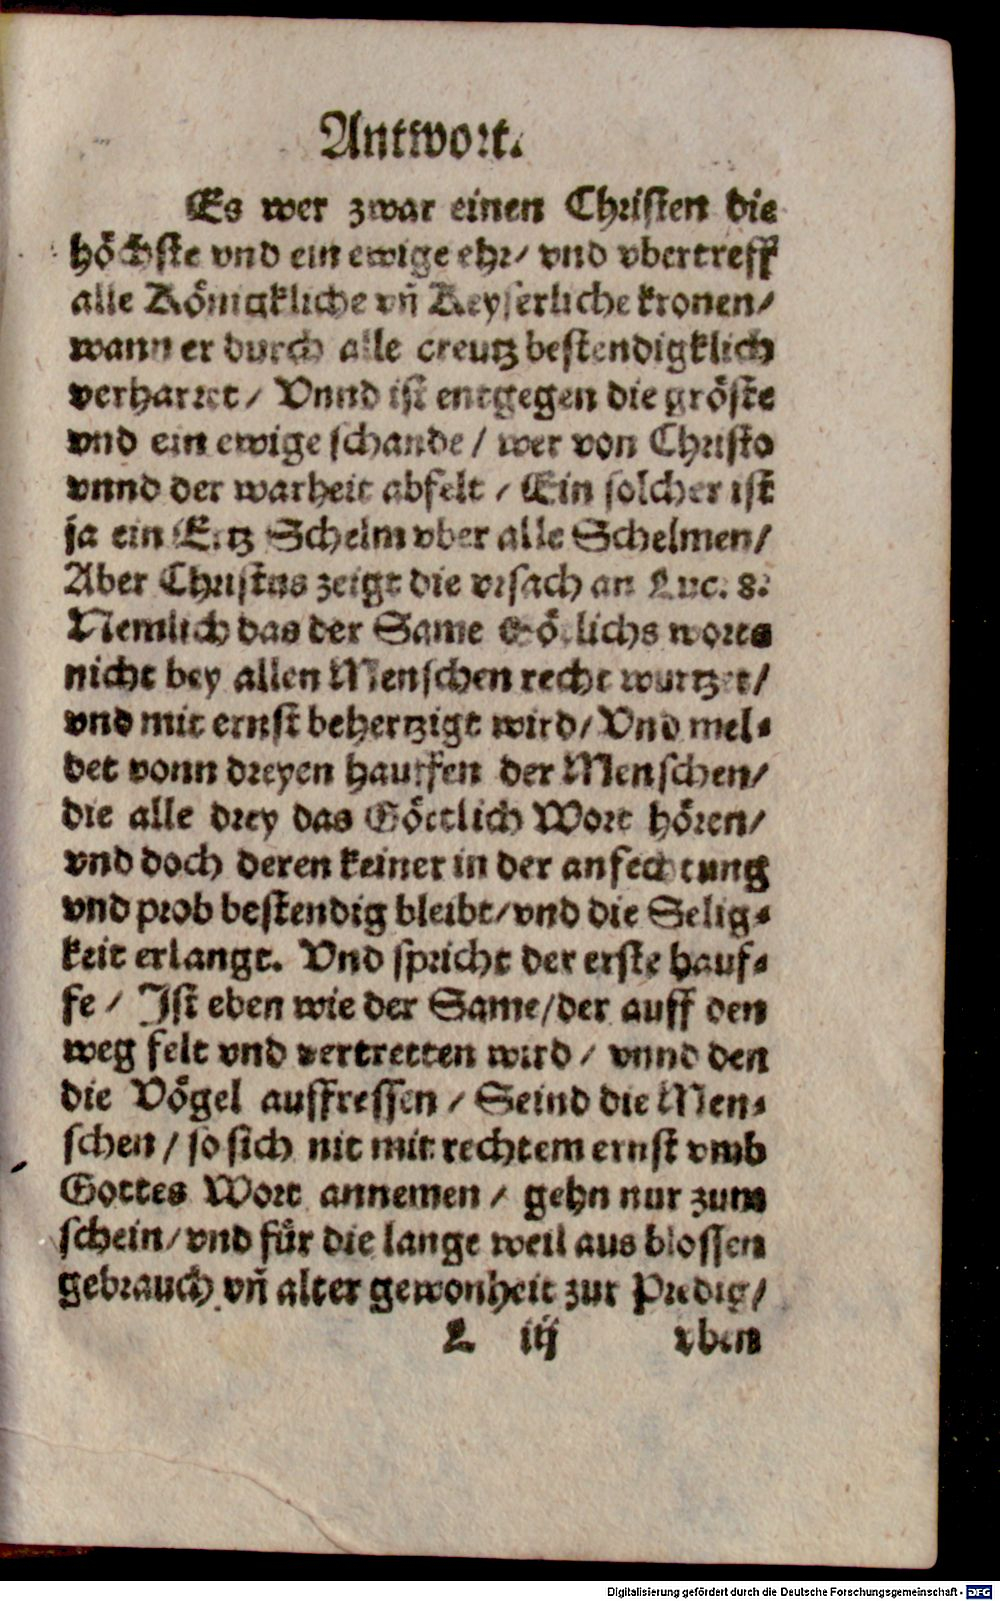 Antwort.
Es wer zwar einen Christen die
höchste vnd ein ewige ehr/ vnd vbertreff
alle Königkliche vñ Keyserliche kronen/
wann er durch alle creutz bestendigklich
verharret/ Vnnd ist entgegen die gröste
vnd ein ewige schande/ wer von Christo
vnnd der warheit abfelt/ Ein solcher ist
ja ein Ertz Schelm vber alle Schelmen/
Aber Christus zeigt die vrsach an Luc. 8.
Nemlich das der Same Götlichs worts
nicht bey allen Menschen recht wurtzet/
vnd mit ernst behertzigt wird/ Vnd mel-
det vonn dreyen hauffen der Menschen/
die alle drey das Göttlich Wort hören/
vnd doch deren keiner in der anfechtung
vnd prob bestendig bleibt/ vnd die Selig-
keit erlangt. Vnd spricht der erste hauf-
fe/ Ist eben wie der Same/ der auff den
weg felt vnd vertretten wird/ vnnd den
die Vögel auffressen/ Seind die Men-
schen/ so sich nit mit rechtem ernst vmb
Gottes Wort annemen/ gehn nur zum
schein/ vnd für die lange weil aus blossen
gebrauch vñ alter gewonheit zur Predig/
L iij vben
Digitalisierung gefördert durch die Deutsche Forschungsgemeinschaft - DFG